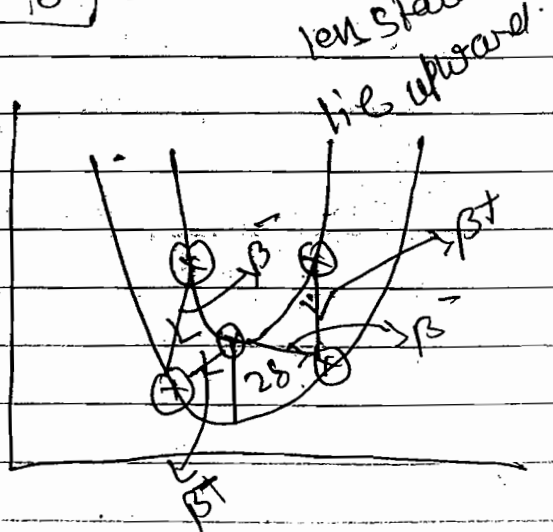 10
less stable
lie upward.
β⁻
β⁺
β⁻
2δ
β⁺